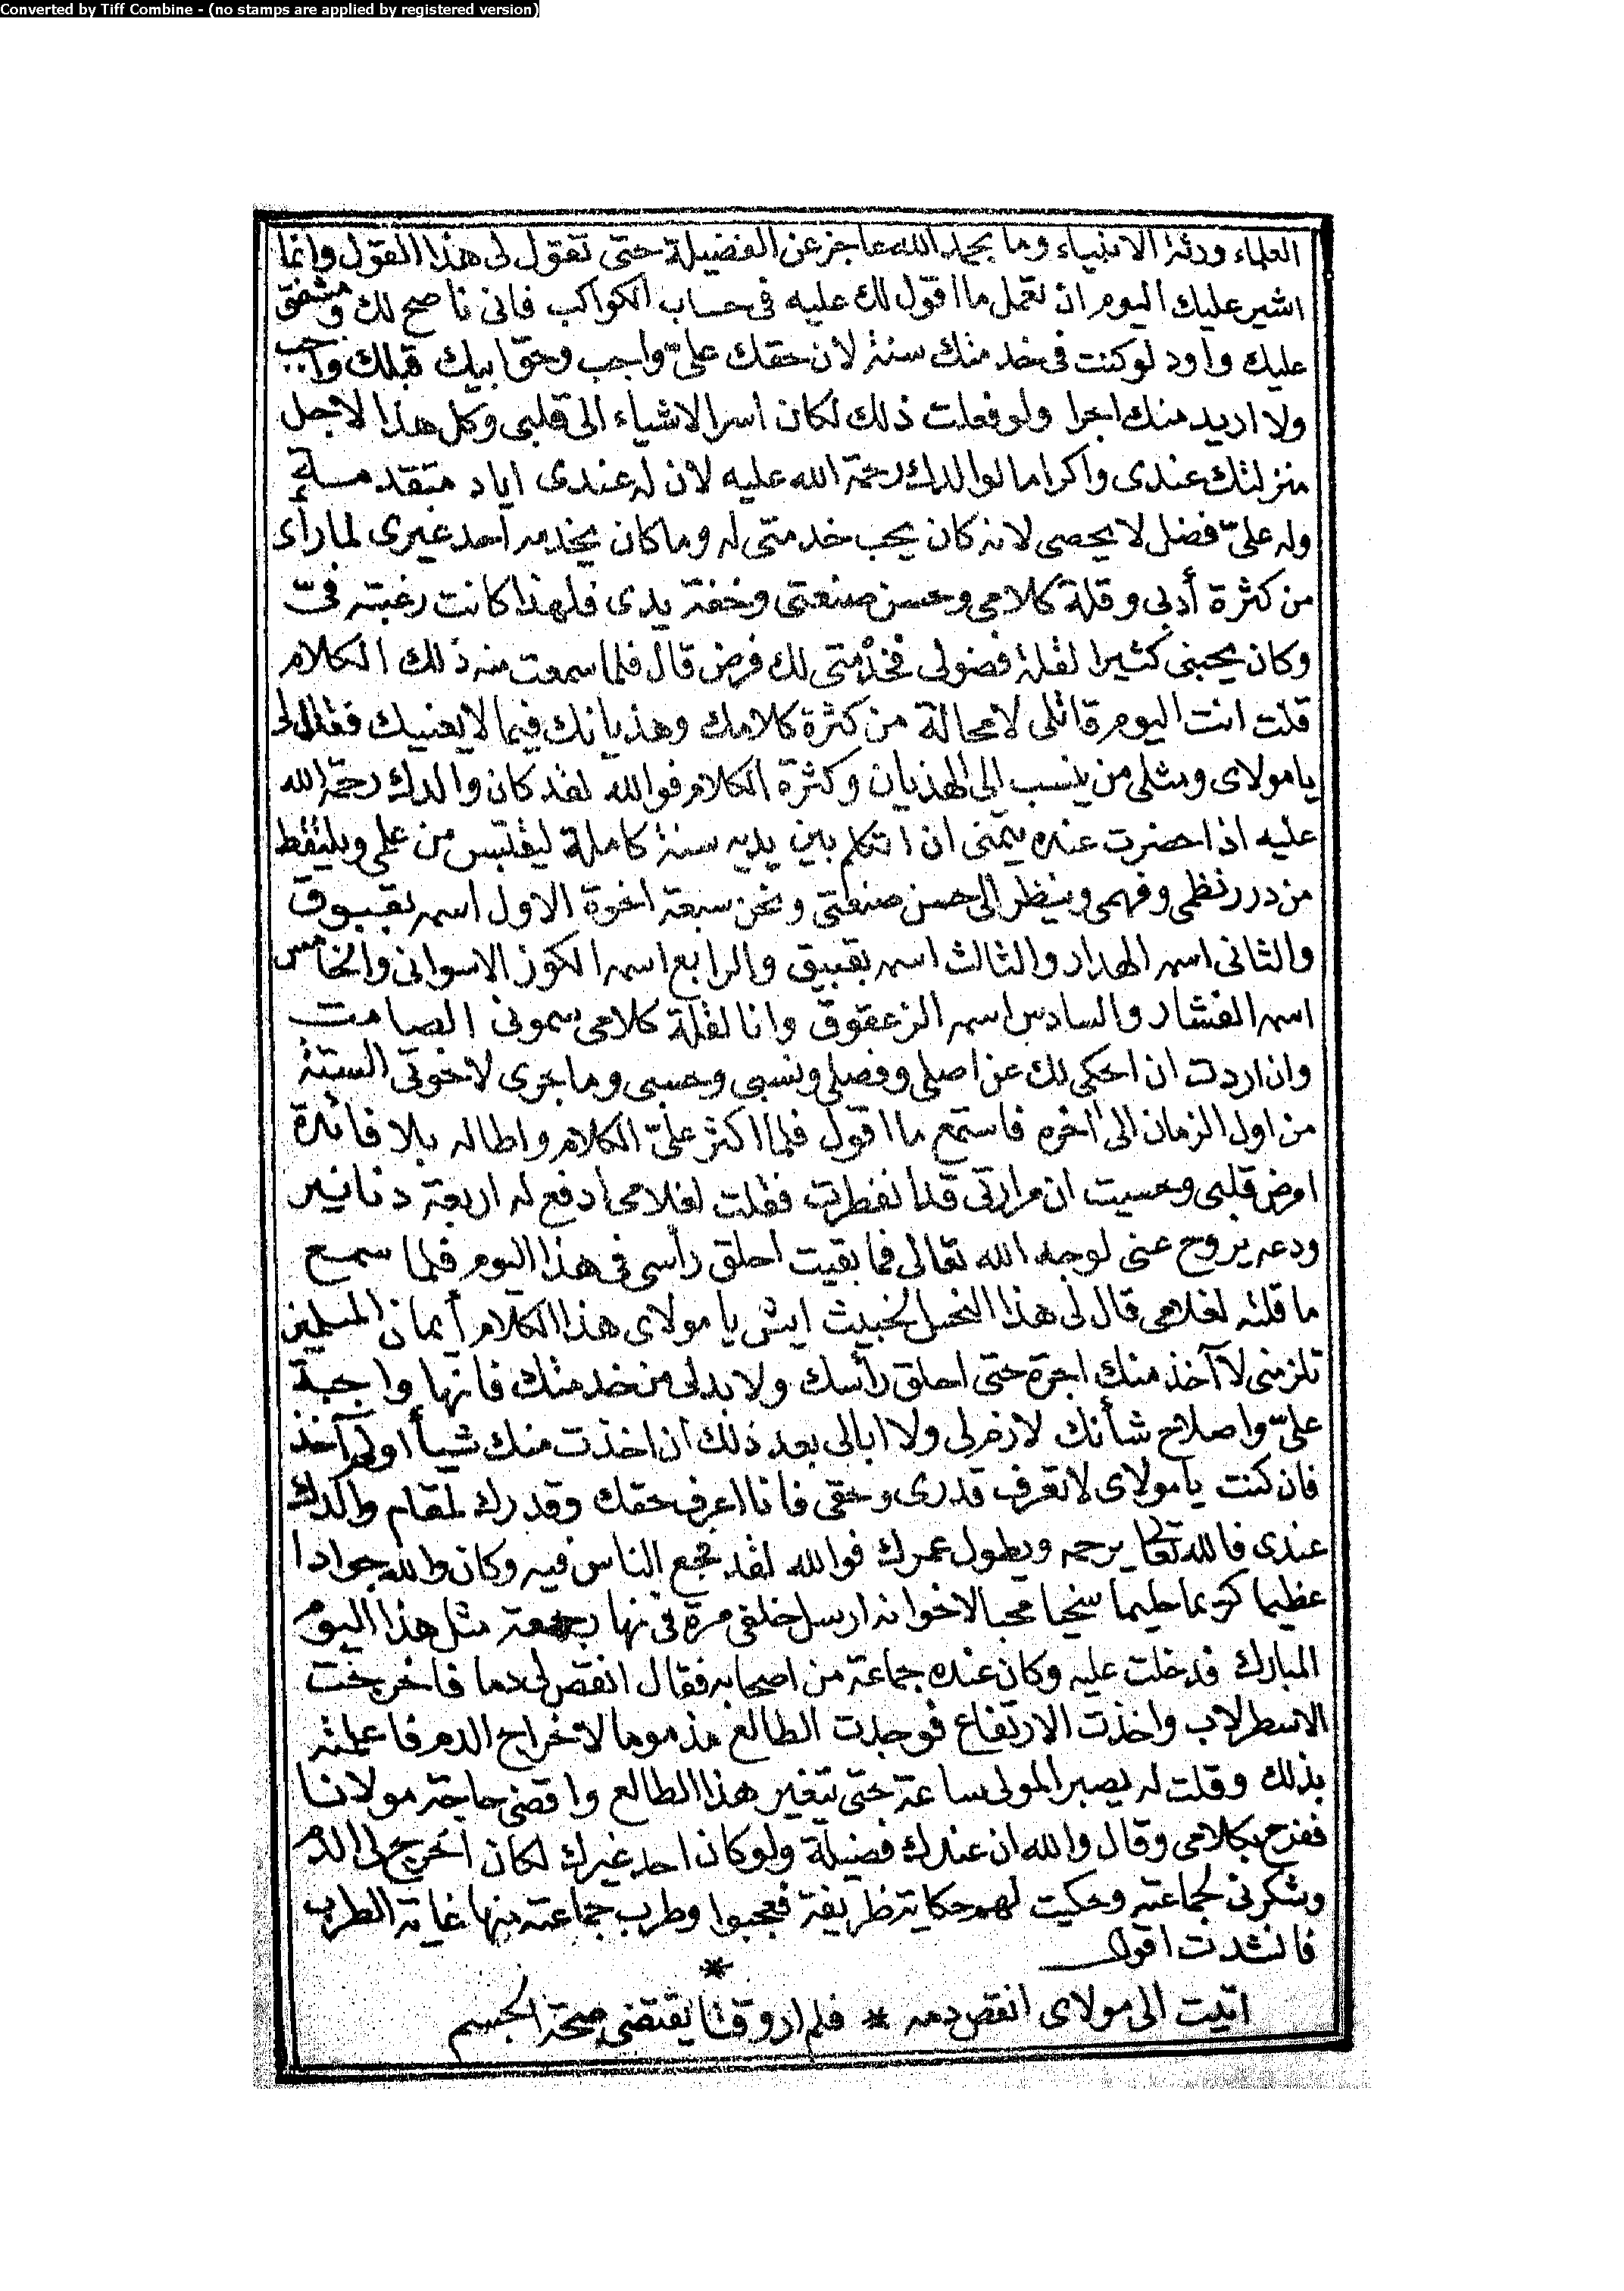 Converted by Tiff Combine - (no stamps are applied by registered version)
العلماء ورثة الانبياء وما بحمد الله عاجز عن الفضيلة حتى تقول لى هذا القول وانما
اشير عليك اليوم ان تعمل ما اقول لك عليه فى حساب الكواكب فانى ناصح لك ومشفق
عليك واود لو كنت فى خدمتك سنة لان حقك علىّ واجب وحق ابيك قبلك واجب
ولا اريد منك اجرا ولو فعلت ذلك لكان اسر الاشياء الى قلبى وكل هذا لاجل
منزلتك عندى واكراما لوالدك رحمة الله عليه لان له عندى اياد متقدمة
وله علىّ فضل لا يحصى لانه كان يحب خدمتى له وما كان يخدمه احد غيرى لما رأى
من كثرة أدبى وقلة كلامى وحسن صنعتى وخفة يدى فلهذا كانت رغبته فىّ
وكان يحبنى كثيرا لقلة فضولى فخدمتى لك فرض قال فلما سمعت منه ذلك الكلام
قلت انت اليوم قاتلى لا محالة من كثرة كلامك وهذيانك فيما لا يعنيك فقال لى
يا مولاى ومثلى من ينسب الى الهذيان وكثرة الكلام فوالله لقد كان والدك رحمة الله
عليه اذا حضرت عنده يتمنى ان اتكلم بين يديه سنة كاملة ليقتبس من علمى ويلتقط
من درر نظمى وفهمى وينظر الى حسن صنعتى ونحن سبعة اخوة الاول اسمه بقبوق
والثانى اسمه الهدار والثالث اسمه بقبيق والرابع اسمه الكوز الاسوانى والخامس
اسمه الفشار والسادس اسمه الزعقوق وانا لقلة كلامى سمونى الصامت
وان اردت ان احكى لك عن اصلى وفصلى ونسبى وحسبى وما جرى لاخوتى الستة
من اول الزمان الى اخره فاستمع ما اقول فلما اكثر علىّ الكلام واطاله بلا فائدة
امرض قلبى وحسيت ان مرارتى قد انفطرت فقلت لغلامى ادفع له اربعة دنانير
ودعه يروح عنى لوجه الله تعالى فما بقيت احلق رأسى فى هذا اليوم فلما سمع
ما قلته لغلامى قال لى هذا النحس الخبيث ايش يا مولاى هذا الكلام أيمان المسلمين
تلزمنى لا آخذ منك اجرة حتى احلق رأسك ولا بد لى من خدمتك فانها واجبة
علىّ واصلاح شأنك لازم لى ولا ابالى بعد ذلك ان اخذت منك شيأ او لم آخذ
فان كنت يا مولاى لا تعرف قدرى وحقى فانا اعرف حقك وقدرك لمقام والدك
عندى فالله تعالى يرحمه ويطول عمرك فوالله لقد فجع الناس فيه وكان والله جوادا
عظيما كريما حليما سخيا محبا لاخوانه ارسل خلفى مرة فى نهار جمعة مثل هذا اليوم
المبارك فدخلت عليه وكان عنده جماعة من اصحابه فقال انقص لى دما فاخرجت
الاسطرلاب واخذت الارتفاع فوجدت الطالع مذموما لاخراج الدم فاعلمته
بذلك وقلت له يصبر المولى ساعة حتى يتغير هذا الطالع واقضى حاجة مولانا
ففرح بكلامى وقال والله ان عندك فضيلة ولو كان احد غيرك لكان اخرج لى الدم
وشكرنى لجماعته وحكيت لهم حكاية ظريفة فعجبوا وطرب جماعته منها غاية الطرب
فانشدت اقول
*
اتيت الى مولاى انقص دمه * فلم ار وقتا يقتضى صحة الجسم